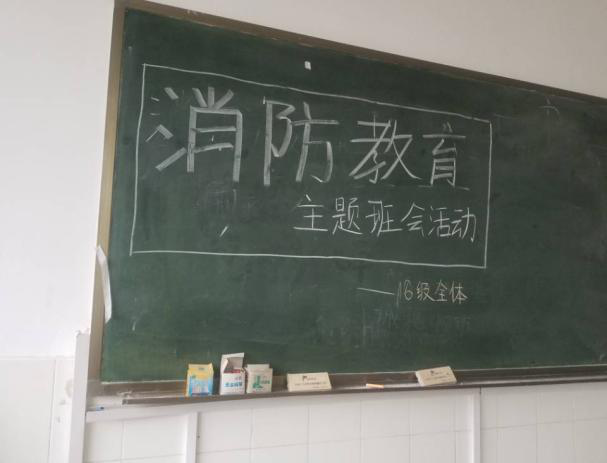 消防教育
主题班会活动
——16级全体